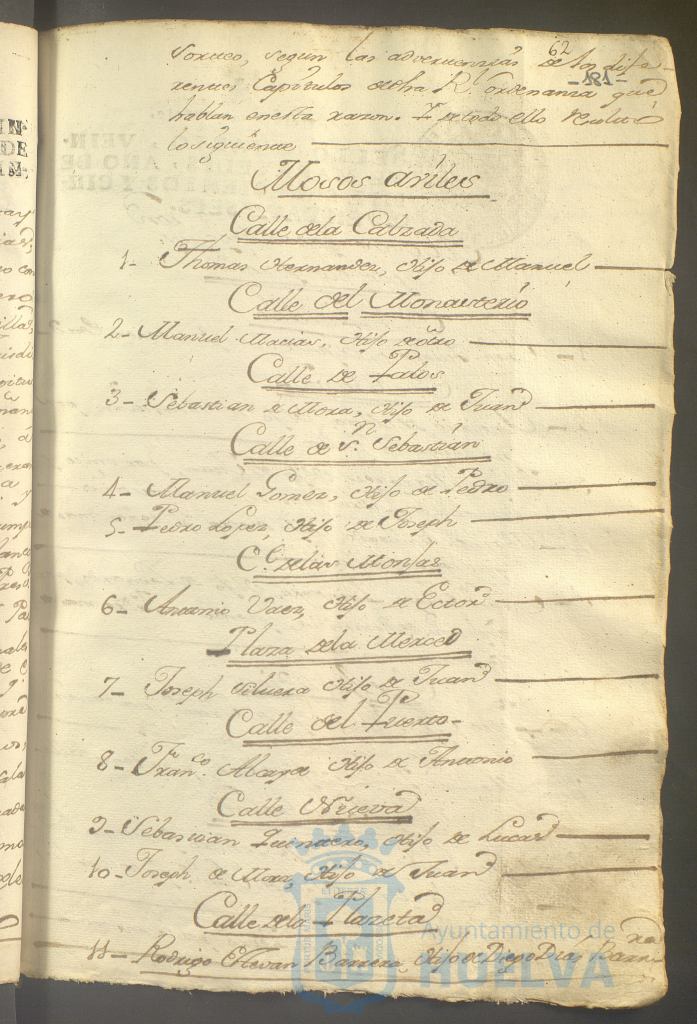 62
sorteo, segun las advertencias de los dife-
-181-
rentes Capitulos dedha Rl. ordenanza que
hablan enesta razon. I detodo ello resultó
lo siguiente
Mosos utiles
Calle dela Calzada
1- Thomas Hernandez, Hijo de Manuel
Calle del Monasterio
2- Manuel Macias, Hijo de otro
Calle de Palos
3- Sebastian de Mora, Hijo de Juan
Calle de Sn. Sebastián
4- Manuel Gomez, Hijo de Pedro
5- Pedro Lopez, Hijo de Joseph
Ce. delas Monjas
6- Antonio Vaez, Hijo de
Plaza dela Merced
7- Joseph Hijo de Juan
Calle del Puerto-
8- Franco. Hijo de Antonio
Calle Nueva
9- Sebastian Quintero, Hijo de Lucas
10- Joseph de Mora, Hijo de Juan
Calle dela Plazeta
11- Rodrigo Estevan Barrera, Hijo de Diego Dias
Ayuntamiento de
HUELVA